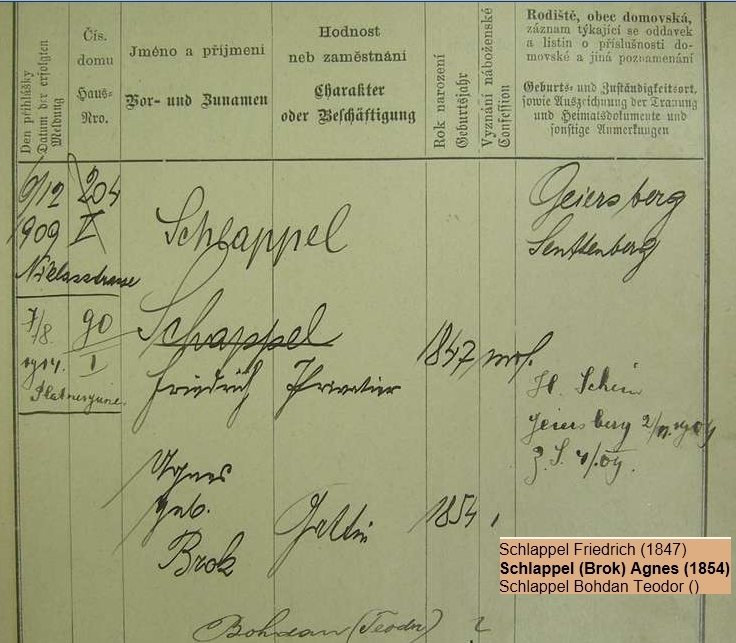 Den přihlášky
Datum der erfolgten
Meldung
Čís.
domu
Haus-
Nro.
Jméno a příjmení
Vor- und Zunamen
Hodnost
neb zaměstnání
Charakter
oder Beschäftigung
Rok narození
Geburtsjahr
Vyznání náboženské
Confession
Rodiště, obec domovská,
záznam týkající se oddavek
a listin o příslušnosti do-
movské a jiná poznamenání
Geburts- und Zuständigkeitsort,
sowie Auszeichnung der Trauung
und Heimatsdokumente und
sonstige Anmerkungen
6/12 204
1909 II
Niklasstrasse
Schlappel
Geiersberg
Senftenberg
7/8 90
1914. I
Schappel
Friedrich Privatier 1847 mos.
H. Schein
Geiersberg
Agnes
geb.
Brok
Gattin 1854
Bohdan (Teodor) ?
Schlappel Friedrich (1847)
Schlappel (Brok) Agnes (1854)
Schlappel Bohdan Teodor ()